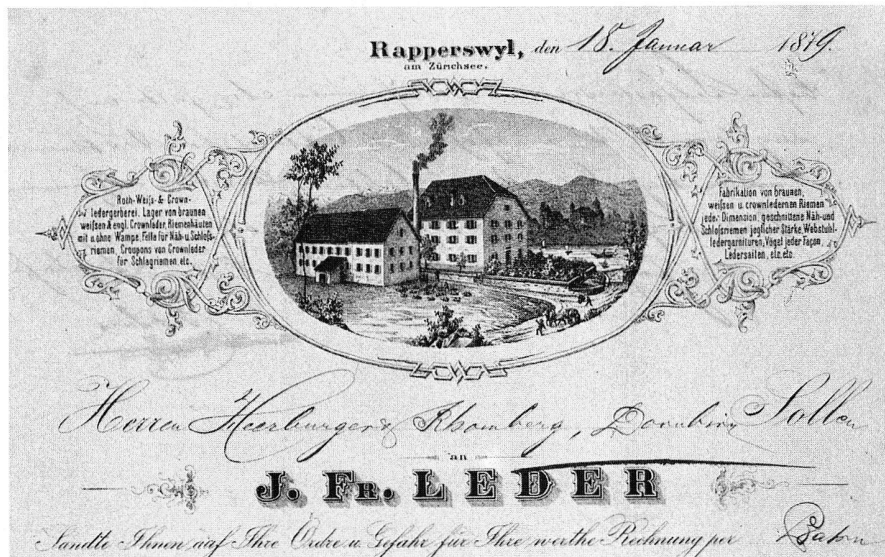 Rapperswyl, den 18. Januar 1879.
am Zürichsee.
Roth-Weiss- & Crown-
ledergerberei. Lager von braunen
weissen & engl. Crownleder, Riemenhäuten
mit u. ohne Wampe. Felle für Näh- u. Schlags-
riemen, Croupons von Crownleder
für Schlagriemen, etc.
Fabrikation von braunen,
weissen u. crownledernen Riemen
jeder Dimension, geschnittene Näh- und
Schlossriemen jeglicher Stärke, Webstuhl-
ledergarnituren, Vögel jeder Façon,
Ledersaiten, etc. etc.
Herren Heerburger & Rhomberg, Dornbirn Sollen
an
J. FR. LEDER
Sandte Ihnen auf Ihre Ordre u. Gefahr für Ihre werthe Rechnung per Bahn